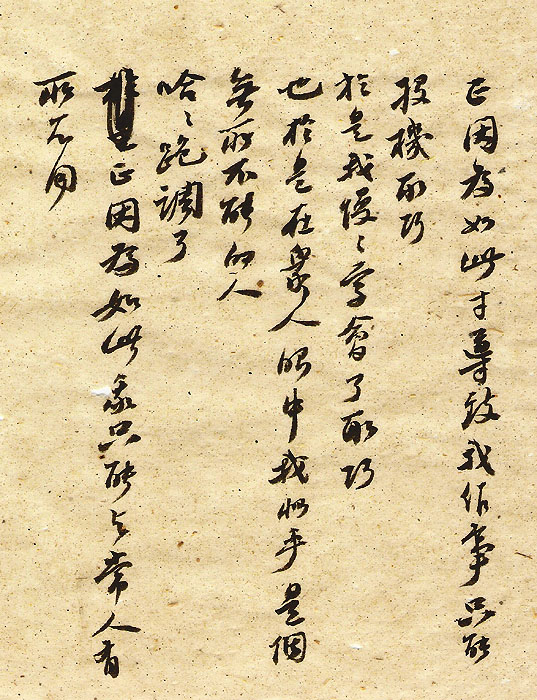 正因為如此才導致我作事只能
投機取巧
於是我慢〻學會了取巧
也於是在眾人眼中我似乎是個
無所不能的人
哈〻跑調了
正因為如此我只能与常人有
所不同